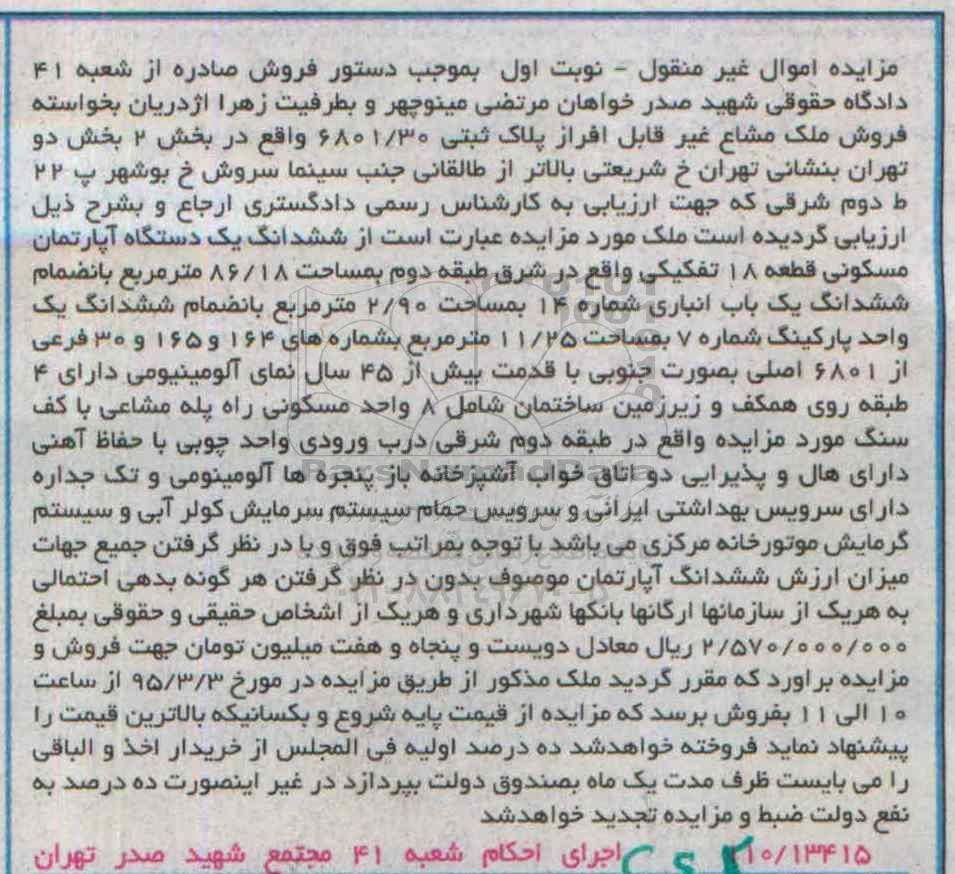 مزایده اموال غیر منقول - نوبت اول بموجب دستور فروش صادره از شعبه ۴۱
دادگاه حقوقی شهید صدر خواهان مرتضی مینوچهر و بطرفیت زهرا اژدریان بخواسته
فروش ملک مشاع غیر قابل افراز پلاک ثبتی ۶۸۰۱/۳۰ واقع در بخش ۲ بخش دو
تهران بنشانی تهران خ شریعتی بالاتر از طالقانی جنب سینما سروش خ بوشهر پ ۲۲
ط دوم شرقی که جهت ارزیابی به کارشناس رسمی دادگستری ارجاع و بشرح ذیل
ارزیابی گردیده است ملک مورد مزایده عبارت است از ششدانگ یک دستگاه آپارتمان
مسکونی قطعه ۱۸ تفکیکی واقع در شرق طبقه دوم بمساحت ۸۶/۱۸ مترمربع بانضمام
ششدانگ یک باب انباری شماره ۱۴ بمساحت ۲/۹۰ مترمربع بانضمام ششدانگ یک
واحد پارکینگ شماره ۷ بمساحت ۱۱/۲۵ مترمربع بشماره های ۱۶۴ و ۱۶۵ و ۳۰ فرعی
از ۶۸۰۱ اصلی بصورت جنوبی با قدمت بیش از ۴۵ سال نمای آلومینیومی دارای ۴
طبقه روی همکف و زیرزمین ساختمان شامل ۸ واحد مسکونی راه پله مشاعی با کف
سنگ مورد مزایده واقع در طبقه دوم شرقی درب ورودی واحد چوبی با حفاظ آهنی
دارای هال و پذیرایی دو اتاق خواب آشپزخانه باز پنجره ها آلومینومی و تک جداره
دارای سرویس بهداشتی ایرانی و سرویس حمام سیستم سرمایش کولر آبی و سیستم
گرمایش موتورخانه مرکزی می باشد با توجه بمراتب فوق و با در نظر گرفتن جمیع جهات
میزان ارزش ششدانگ آپارتمان موصوف بدون در نظر گرفتن هر گونه بدهی احتمالی
به هریک از سازمانها ارگانها بانکها شهرداری و هریک از اشخاص حقیقی و حقوقی بمبلغ
۲/۵۷۰/۰۰۰/۰۰۰ ریال معادل دویست و پنجاه و هفت میلیون تومان جهت فروش و
مزایده براورد که مقرر گردید ملک مذکور از طریق مزایده در مورخ ۹۵/۳/۳ از ساعت
۱۰ الی ۱۱ بفروش برسد که مزایده از قیمت پایه شروع و بکسانیکه بالاترین قیمت را
پیشنهاد نماید فروخته خواهدشد ده درصد اولیه فی المجلس از خریدار اخذ و الباقی
را می بایست ظرف مدت یک ماه بصندوق دولت بپردازد در غیر اینصورت ده درصد به
نفع دولت ضبط و مزایده تجدید خواهدشد
۱۱۰/۱۳۴۱۵ اجرای احکام شعبه ۴۱ مجتمع شهید صدر تهران
ParsNamadData